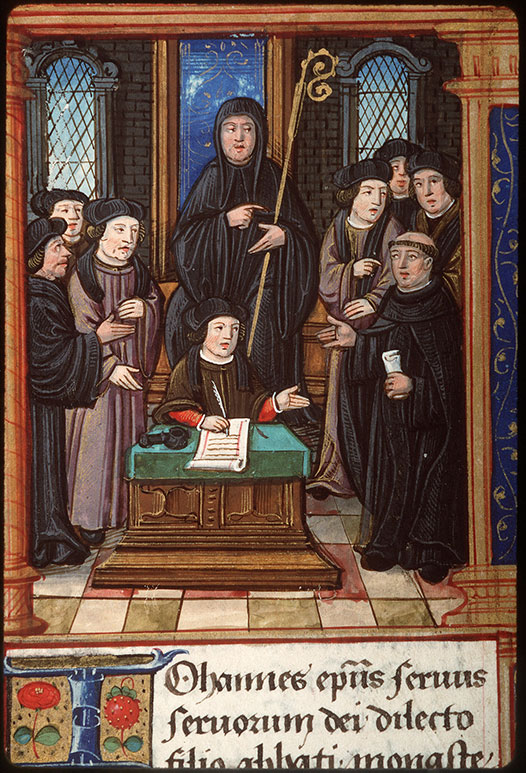 Iohannes ep̃us seruus
seruorum dei dilecto
filio abbati monaste